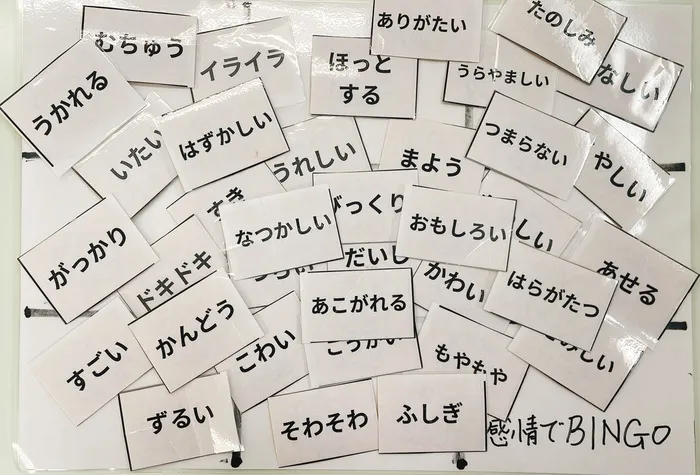 むちゅう
イライラ
ほっと
する
ありがたい
たのしみ
うらやましい
なしい
うかれる
いたい
はずかしい
うれしい
まよう
つまらない
やしい
がっかり
すき
なつかしい
びっくり
おもしろい
しい
あせる
ドキドキ
だいじ
かわい
はらがたつ
あこがれる
すごい
かんどう
こわい
もやもや
ずるい
そわそわ
ふしぎ
感情でBINGO